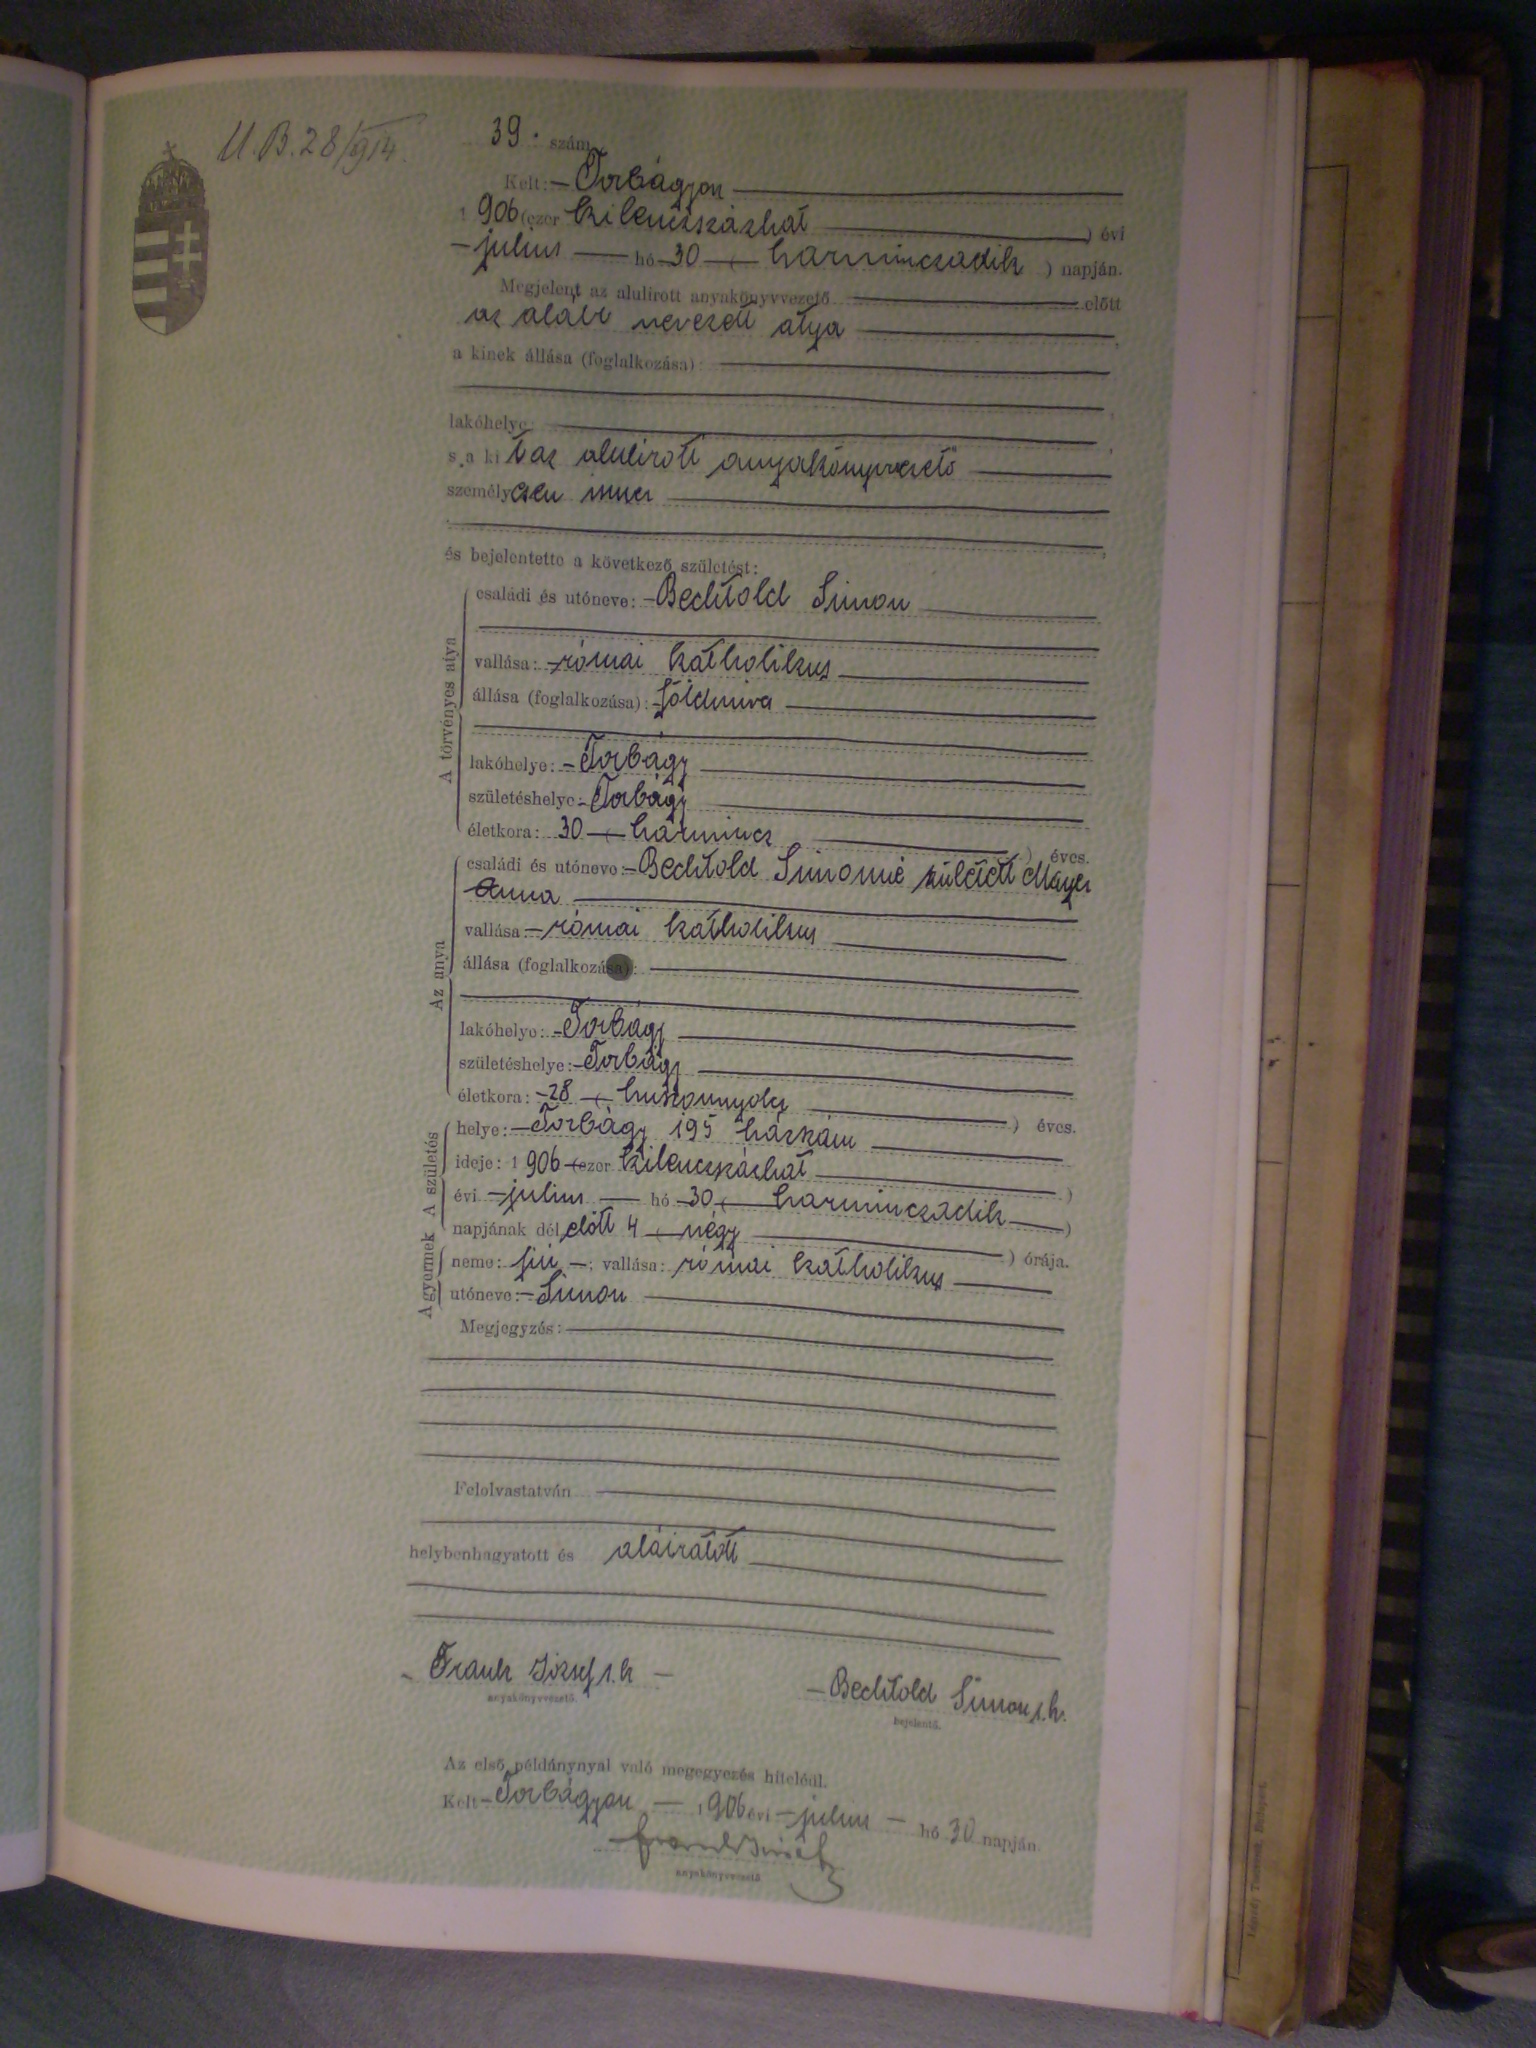 U.B.28/914.
39. szám.
Kelt: – Torbágyon
1906 (ezer kilenczszázhat ) évi
– julius – hó 30 ( harminczadik ) napján.
Megjelent az alulirott anyakönyvvezető előtt
az alább nevezett atya ,
a kinek állása (foglalkozása):
,
lakóhelye ,
s a kit az alulirott anyakönyvvezető
személyesen ismer
,
és bejelentette a következő születést:
A törvényes atya
családi és utóneve: – Bechtold Simon
vallása: – római katholikus
állása (foglalkozása): – földmives
lakóhelye: – Torbágy
születéshelye: – Torbágy
életkora: 30 – ( harmincz ) éves.
Az anya
családi és utóneve: – Bechtold Simonné született Mayer
Anna
vallása – római katholikus
állása (foglalkozása):
lakóhelye: – Torbágy
születéshelye: – Torbágy
életkora: – 28 – ( huszonnyolcz ) éves.
A születés
helye: – Torbágy 195 házszám
ideje: 1906 – (ezer kilenczszázhat )
évi – julius – hó – 30 ( harminczadik )
napjának dél előtt 4 ( négy ) órája.
A gyermek
neme: fiú – ; vallása: római katholikus
utóneve: – Simon
Megjegyzés:
Felolvastatván
helybenhagyatott és aláiratott
– Frank József s.k –
anyakönyvvezető.
– Bechtold Simon s.k.
bejelentő.
Az első példánynyal való megegyezés hiteléül.
Kelt – Torbágyon – 1906 évi – julius – hó 30 napján.
anyakönyvvezető